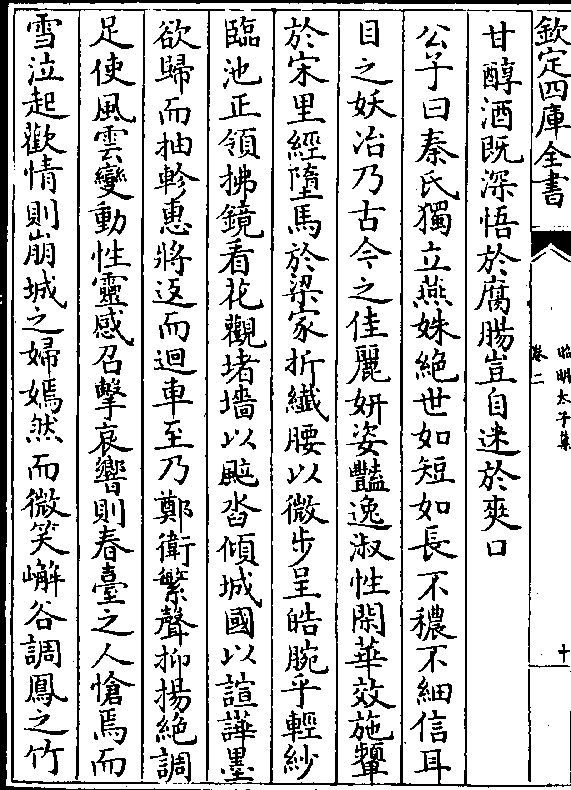 欽定四庫全書
昭明太子集
卷二
十
甘醇酒既深悟於腐腸豈自迷於爽口
公子曰秦氏獨立燕姝絶世如短如長不穠不細信耳
目之妖冶乃古今之佳麗妍姿豔逸淑性閑華效施顰
於宋里經墮馬於梁家折纖腰以微步呈皓腕乎輕紗
臨池正領拂鏡看花觀堵墻以飈沓傾城國以諠譁墨
欲歸而抽軫惠將返而迴車至乃鄭衛繁聲抑揚絶調
足使風雲變動性靈感召擊哀響則春臺之人愴焉而
雪泣起歡情則崩城之婦嫣然而微笑嶰谷調鳳之竹